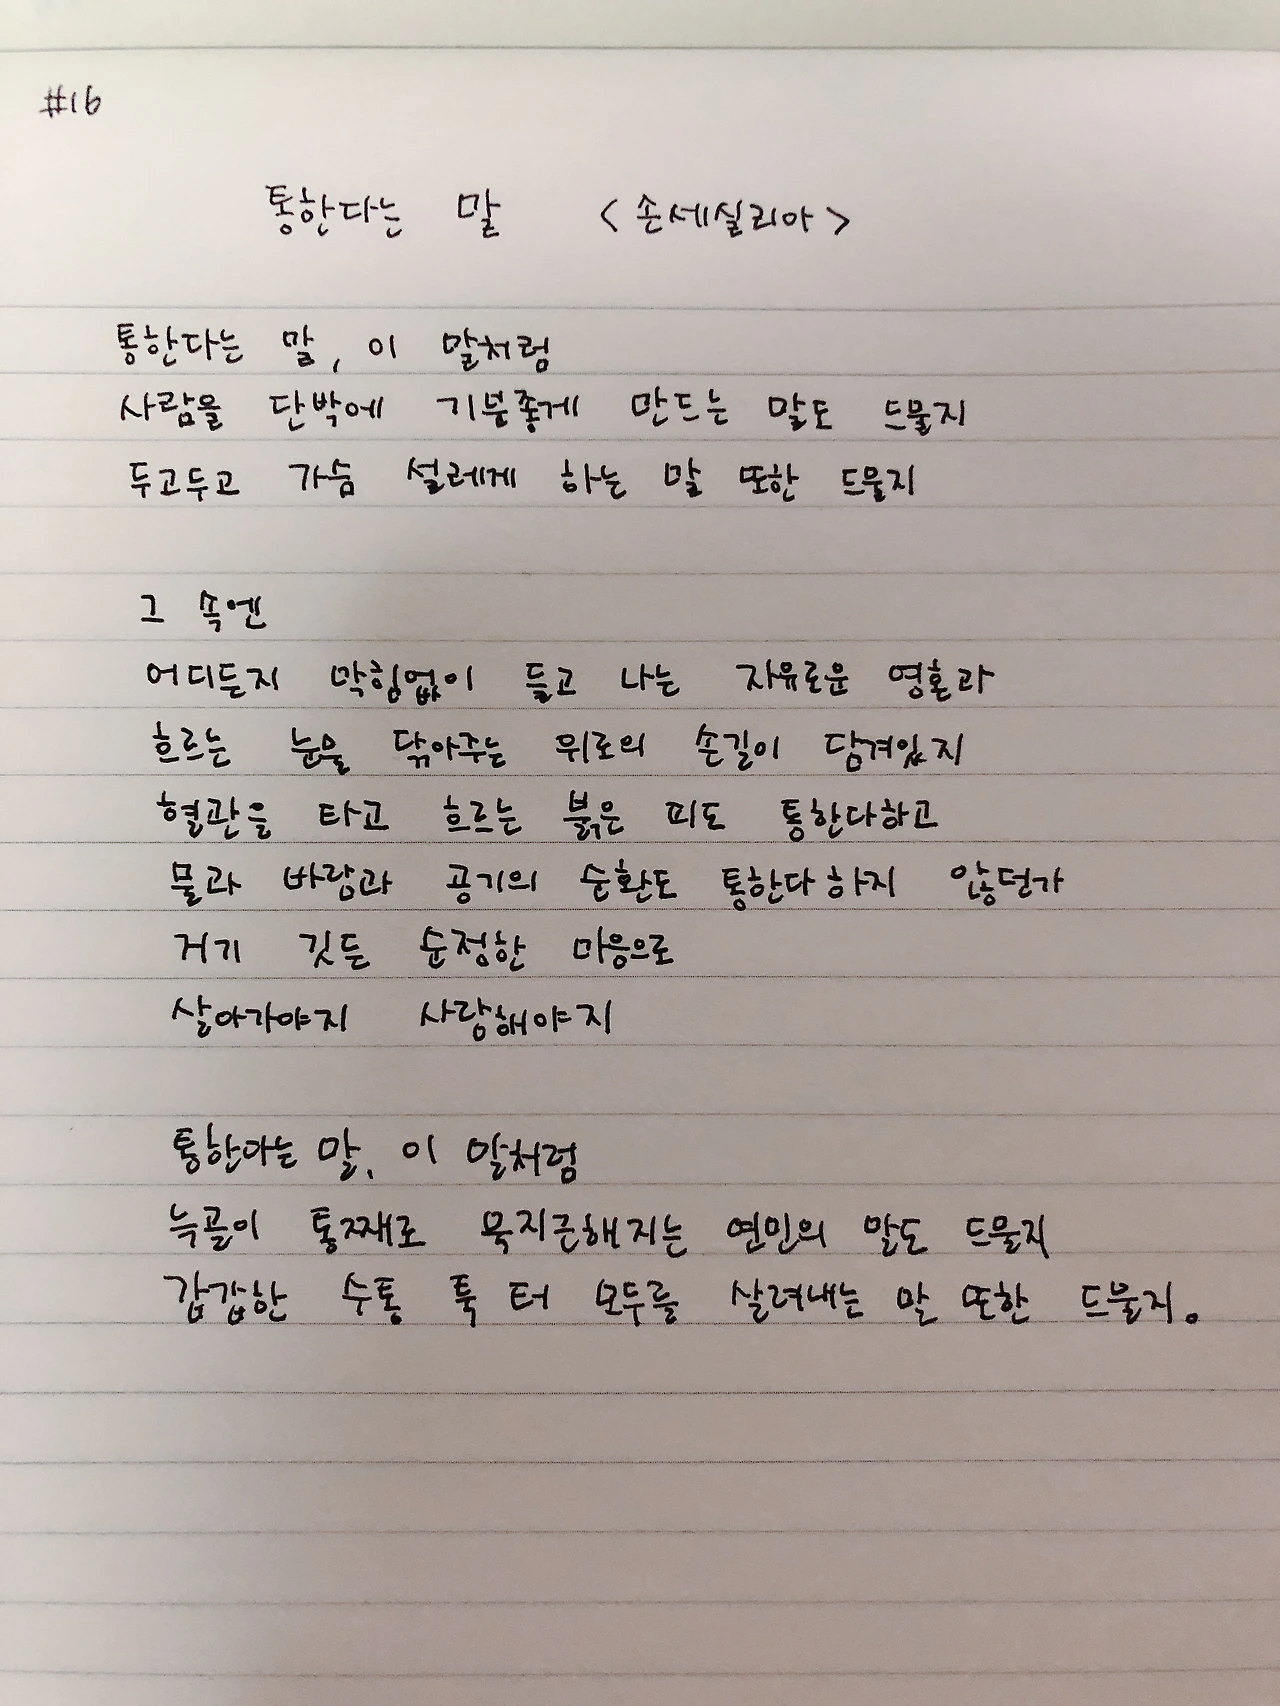 #16
통한다는 말 <손세실리아>
통한다는 말, 이 말처럼
사람을 단박에 기분좋게 만드는 말도 드물지
두고두고 가슴 설레게 하는 말 또한 드물지
그 속엔
어디든지 막힘없이 들고 나는 자유로운 영혼과
흐르는 눈물 닦아주는 위로의 손길이 담겨있지
혈관을 타고 흐르는 붉은 피도 통한다하고
물과 바람과 공기의 순환도 통한다 하지 않던가
거기 깃든 순정한 마음으로
살아가야지 사랑해야지
통한다는 말, 이 말처럼
늑골이 통째로 묵지근해지는 연민의 말도 드물지
갑갑한 수통 툭 터 모두를 살려내는 말 또한 드물지.